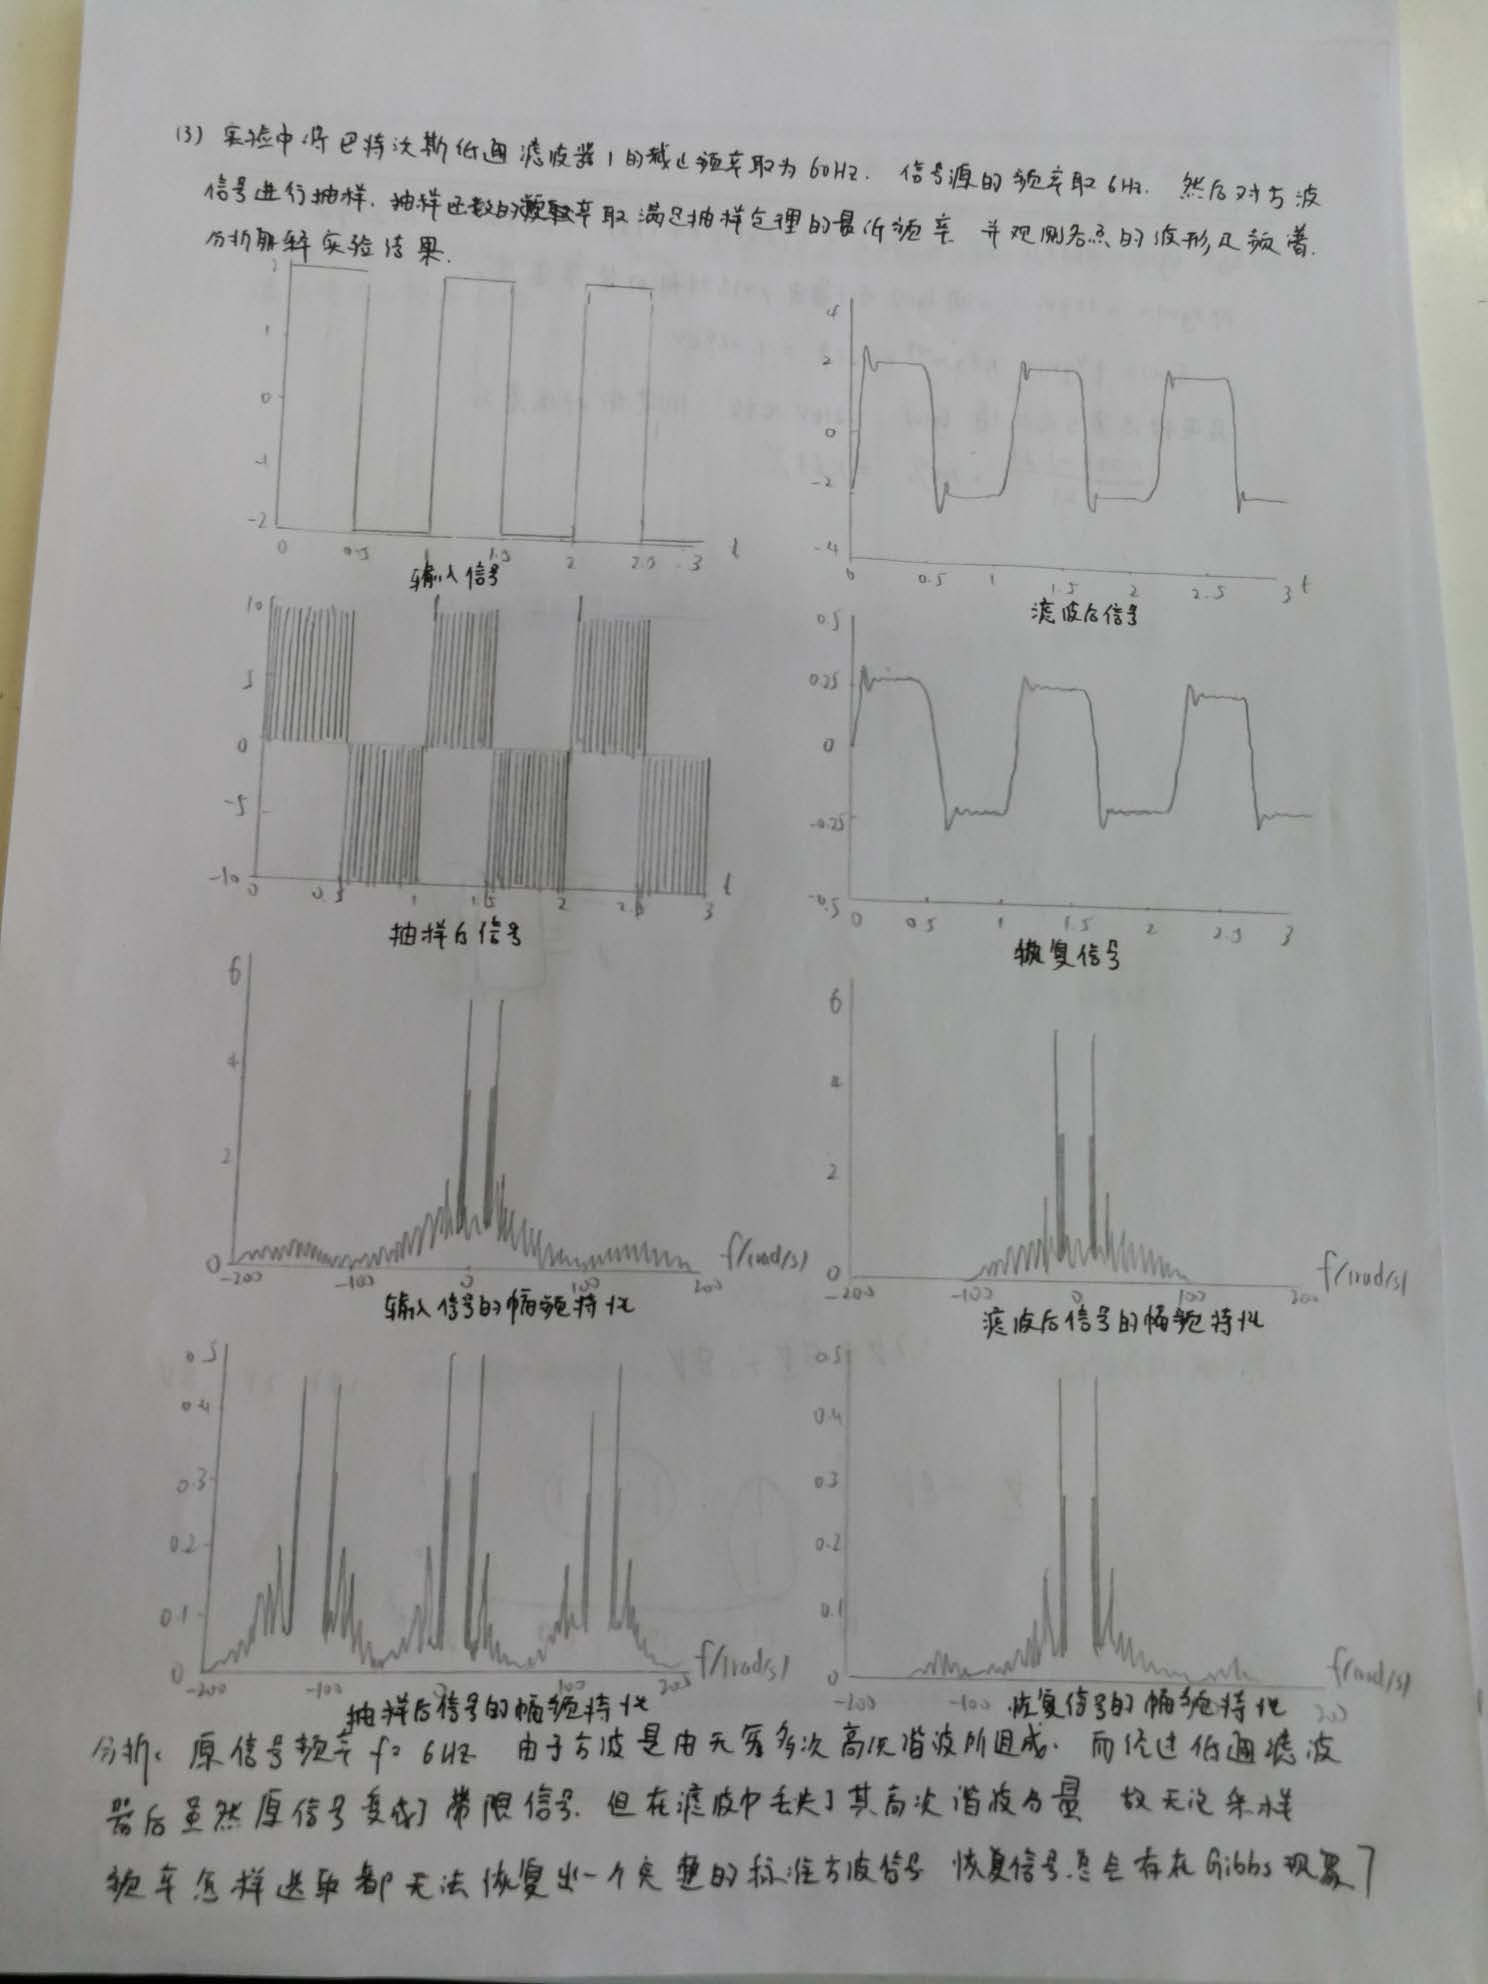 (3) 实验中将巴特沃斯低通滤波器1的截止频率取为60Hz. 信号源的频率取6Hz. 然后对方波
信号进行抽样. 抽样函数的频率取满足抽样定理的最低频率 并观测各点的波形及频谱.
分析解释实验结果.
2
1
0
-1
-2
0 0.5 1 1.5 2 2.5 3 t
输入信号
4
2
0
-2
-4
0 0.5 1 1.5 2 2.5 3 t
滤波后信号
10
5
0
-5
-10
0 0.5 1 1.5 2 2.5 3 t
抽样后信号
0.5
0.25
0
-0.25
-0.5
0 0.5 1 1.5 2 2.5 3
恢复信号
6
4
2
0
-200 -100 0 100 200 f/(rad/s)
输入信号的幅频特性
6
4
2
0
-200 -100 0 100 200 f/(rad/s)
滤波后信号的幅频特性
0.5
0.4
0.3
0.2
0.1
0
-200 -100 0 100 200 f/(rad/s)
抽样后信号的幅频特性
0.5
0.4
0.3
0.2
0.1
0
-200 -100 200 f(rad/s)
恢复信号的幅频特性
分析: 原信号频率 f=6HZ 由于方波是由无穷多次高次谐波所组成. 而经过低通滤波
器后虽然原信号变成了带限信号. 但在滤波中丢失了其高次谐波分量 故无论采样
频率怎样选取都无法恢复出一个完整的标准方波信号 恢复信号总会存在Gibbs现象